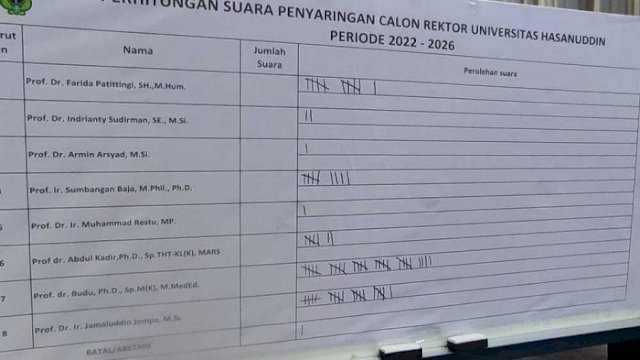 PERHITUNGAN SUARA PENYARINGAN CALON REKTOR UNIVERSITAS HASANUDDIN
PERIODE 2022 - 2026
Nama
Jumlah
Suara
Perolehan suara
Prof. Dr. Farida Patittingi, SH.,M.Hum.
Prof. Dr. Indrianty Sudirman, SE., M.Si.
Prof. Dr. Armin Arsyad, M.Si.
Prof. Ir. Sumbangan Baja, M.Phil., Ph.D.
Prof. Dr. Ir. Muhammad Restu, MP.
6 Prof dr. Abdul Kadir,Ph.D., Sp.THT-KL(K), MARS
7 Prof. dr. Budu, Ph.D., Sp.M(K), M.MedEd.
8 Prof. Dr. Ir. Jamaluddin Jompa, M.Sc
BATAL/ABSTAIN